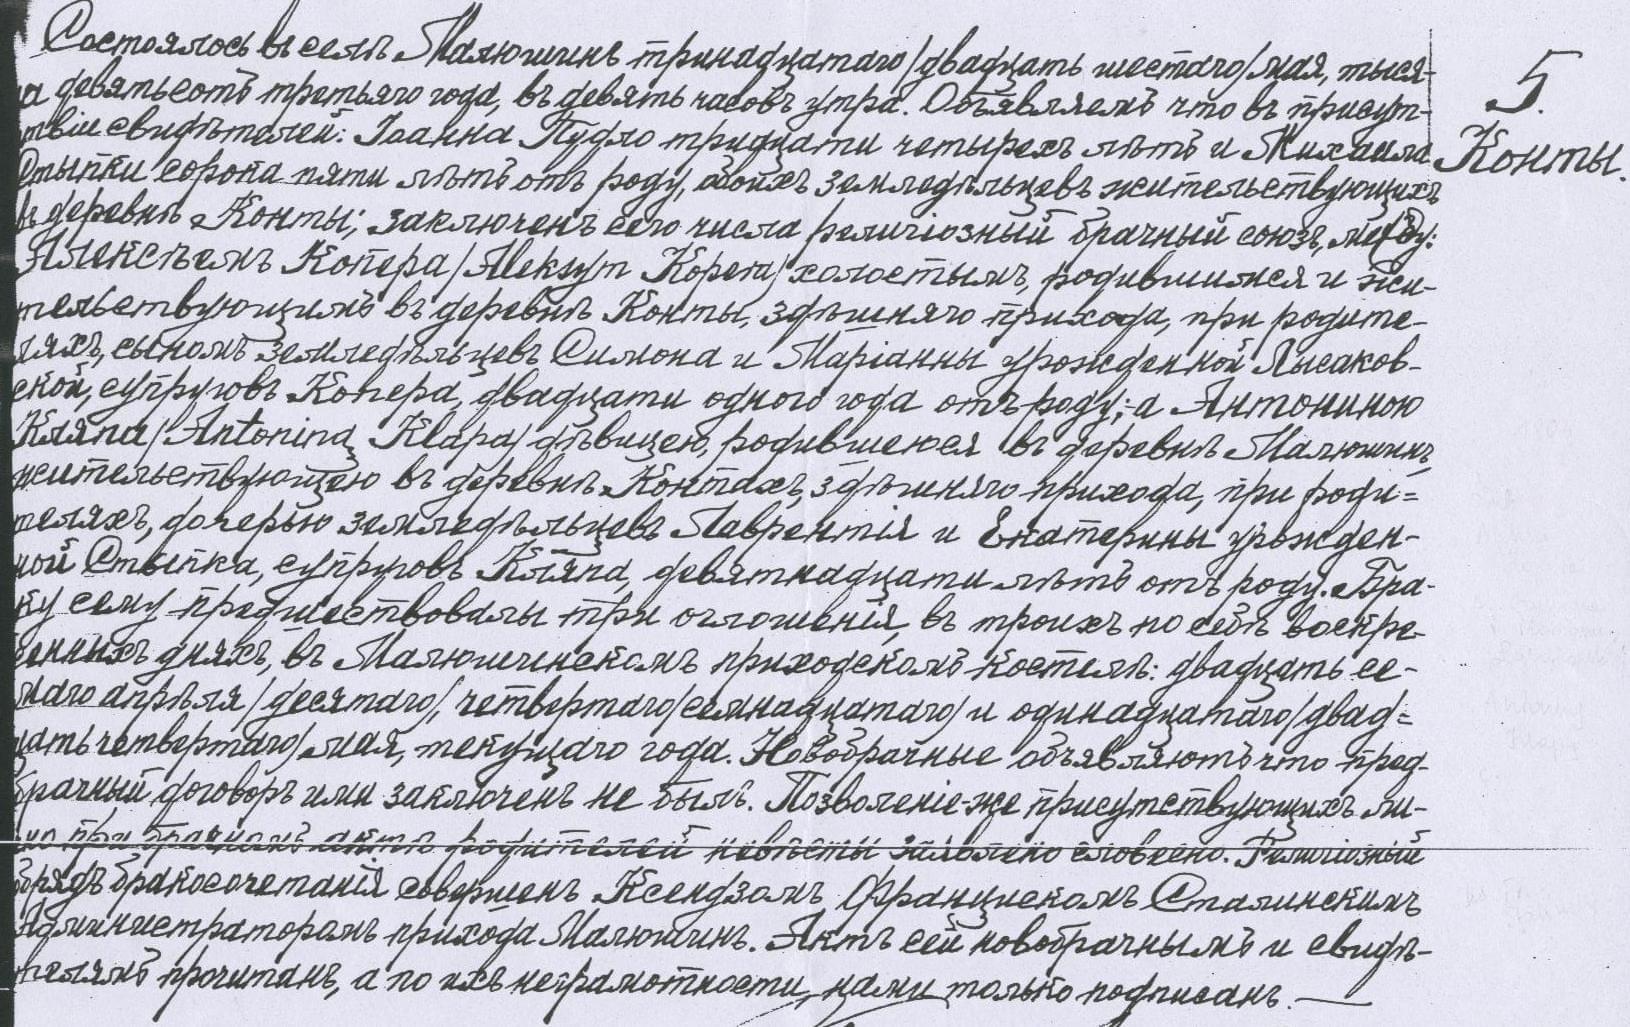 Состоялось въ селѣ Малюшинъ тринадцатаго/двадцать шестаго/мая, тыся-
ча девятьсотъ третьяго года, въ девять часовъ утра. Объявляемъ что въ присут-
ствіи свидѣтелей: Іоанна Пудло тридцати четырехъ лѣтъ и Михаила
Стыпки сорока пяти лѣтъ отъ роду, обоихъ земледѣльцевъ жительствующихъ
въ деревнѣ Конты; заключенъ сего числа религіозный брачный союзъ, между:
Алексѣемъ Копера/Aleksym Kopera/холостымъ, родившимся и жи-
тельствующимъ въ деревнѣ Конты, здѣшняго прихода, при родите-
ляхъ, сыномъ земледѣльцевъ Симона и Маріанны урожденной Лысаков-
ской, супруговъ Копера, двадцати одного года отъ роду;-а Антониною
Кляпа/Antoniną Klapa/дѣвицею, родившеюся въ деревнѣ Малюшинъ,
жительствующею въ деревнѣ Контахъ, здѣшняго прихода, при роди=
теляхъ, дочерью земледѣльцевъ Лаврентія и Екатерины урожден-
ной Стыпка, супруговъ Кляпа, девятнадцати лѣтъ отъ роду. Бра-
ку сему предшествовалы три оглошенія, въ троихъ по себѣ воскре-
сенныхъ дняхъ, въ Малюшинскомъ приходскомъ костелѣ: двадцать се-
маго апрѣля/десятаго/, четвертаго/семнадцатаго/ и одинадцатаго/двад=
цать четвертаго/мая, текущаго года. Новобрачные объявляютъ что пред-
брачный договоръ ими заключенъ не былъ. Позволеніе-же присутствующихъ ли-
чно при брачномъ актѣ родителей невѣсты заявлено словесно. Религіозный
обрядъ бракосочетанія совершенъ Ксендзомъ Францискомъ Сталинскимъ
Администраторомъ прихода Малюшинъ. Актъ сей новобрачнымъ и свидѣ-
телямъ прочитанъ, а по ихъ неграмотности, нами только подписанъ.—
5.
Конты.